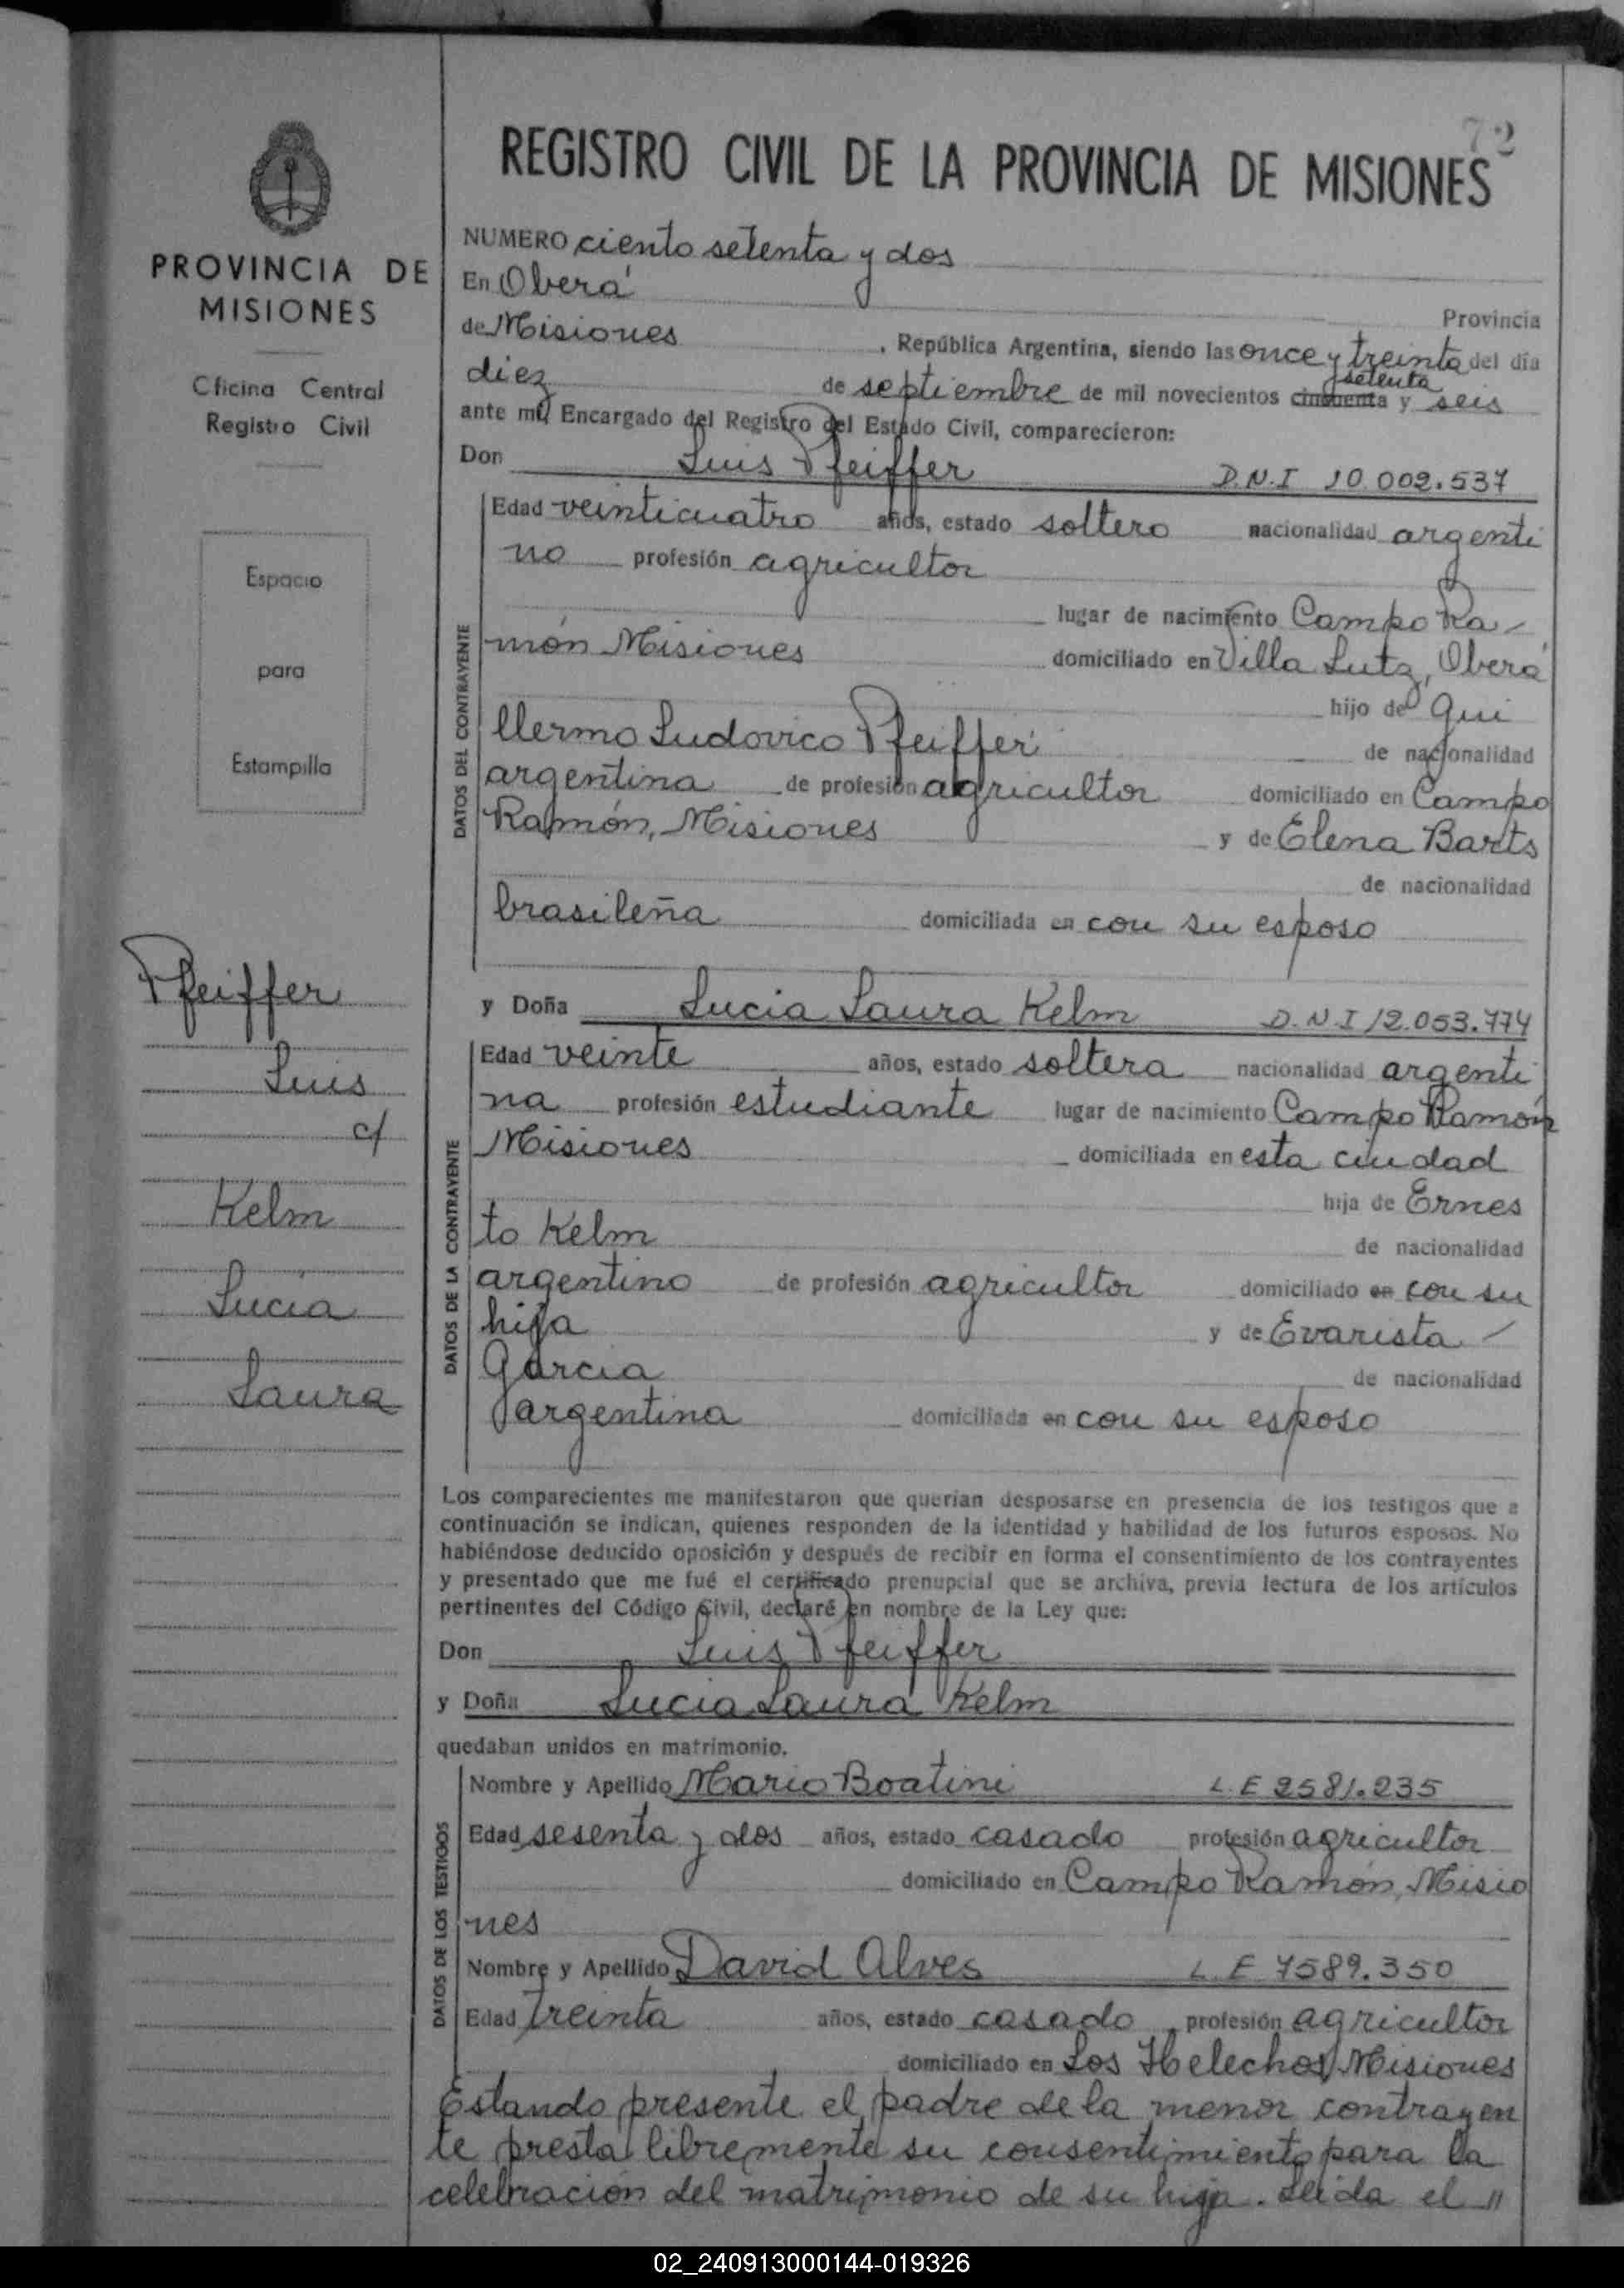 72
REGISTRO CIVIL DE LA PROVINCIA DE MISIONES
PROVINCIA DE
MISIONES
Oficina Central
Registro Civil
Espacio
para
Estampilla
Pfeiffer
Luis
c/
Kelm
Lucía
Laura
NUMERO ciento setenta y dos
En Oberá
Provincia
de Misiones , República Argentina, siendo las once y treinta del día
setenta
diez de septiembre de mil novecientos cincuenta y seis
ante mí, Encargado del Registro del Estado Civil, comparecieron:
Don Luis Pfeiffer D.N.I 10.002.537
DATOS DEL CONTRAYENTE
Edad veinticuatro años, estado soltero nacionalidad argenti
no profesión agricultor
lugar de nacimiento Campo Ra-
món Misiones domiciliado en Villa Lutz, Oberá
hijo de Gui
llermo Ludovico Pfeiffer de nacionalidad
argentina de profesión agricultor domiciliado en Campo
Ramón, Misiones y de Elena Barts
de nacionalidad
brasileña domiciliada en con su esposo
y Doña Lucia Laura Kelm D.N.I 12.053.774
DATOS DE LA CONTRAYENTE
Edad veinte años, estado soltera nacionalidad argenti
na profesión estudiante lugar de nacimiento Campo Ramón
Misiones domiciliada en esta ciudad
hija de Ernes
to Kelm de nacionalidad
argentino de profesión agricultor domiciliado en con su
hija y de Evarista
Garcia de nacionalidad
argentina domiciliada en con su esposo
Los comparecientes me manifestaron que querían desposarse en presencia de los testigos que a
continuación se indican, quienes responden de la identidad y habilidad de los futuros esposos. No
habiéndose deducido oposición y después de recibir en forma el consentimiento de los contrayentes
y presentado que me fué el certificado prenupcial que se archiva, previa lectura de los artículos
pertinentes del Código Civil, declaré en nombre de la Ley que:
Don Luis Pfeiffer
y Doña Lucia Laura Kelm
quedaban unidos en matrimonio.
DATOS DE LOS TESTIGOS
Nombre y Apellido Mario Boatini L.E 2581.235
Edad sesenta y dos años, estado casado profesión agricultor
domiciliado en Campo Ramón, Misio
nes
Nombre y Apellido David Alves L.E 7589.350
Edad treinta años, estado casado profesión agricultor
domiciliado en Los Helechos, Misiones
Estando presente el padre de la menor contrayen
te presta libremente su consentimiento para la
celebración del matrimonio de su hija. Leída el "
02_240913000144-019326